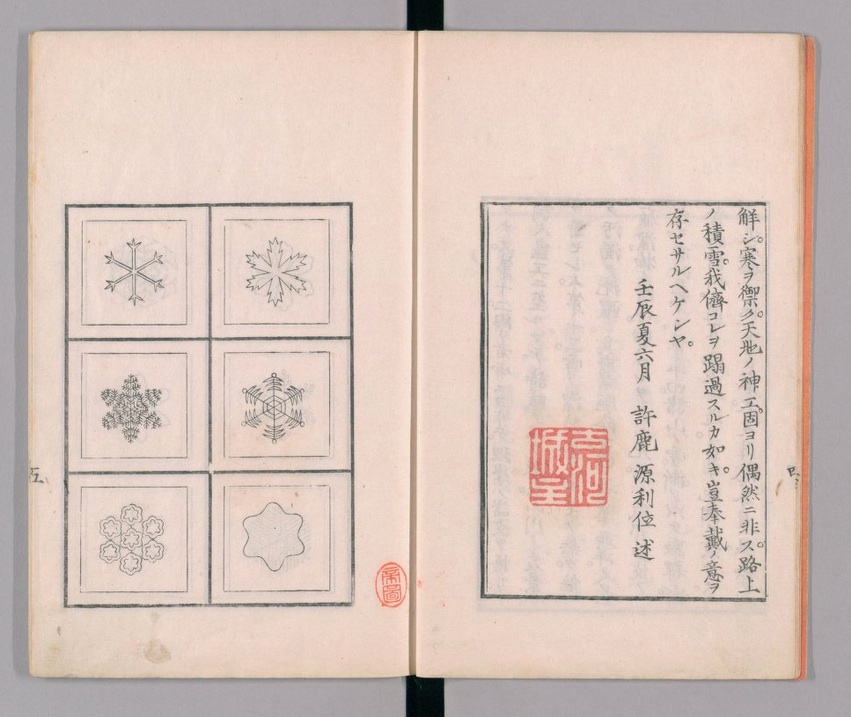 解シ。寒ヲ禦ク。天地ノ神工。固ヨリ偶然ニ非ス。路上
ノ積雪。我儕コレヲ蹋過スルカ如キ。豈奉戴ノ意ヲ
存セサルヘケンヤ。
壬辰夏六月 許鹿 源利位 述
古河
城主
帝圖